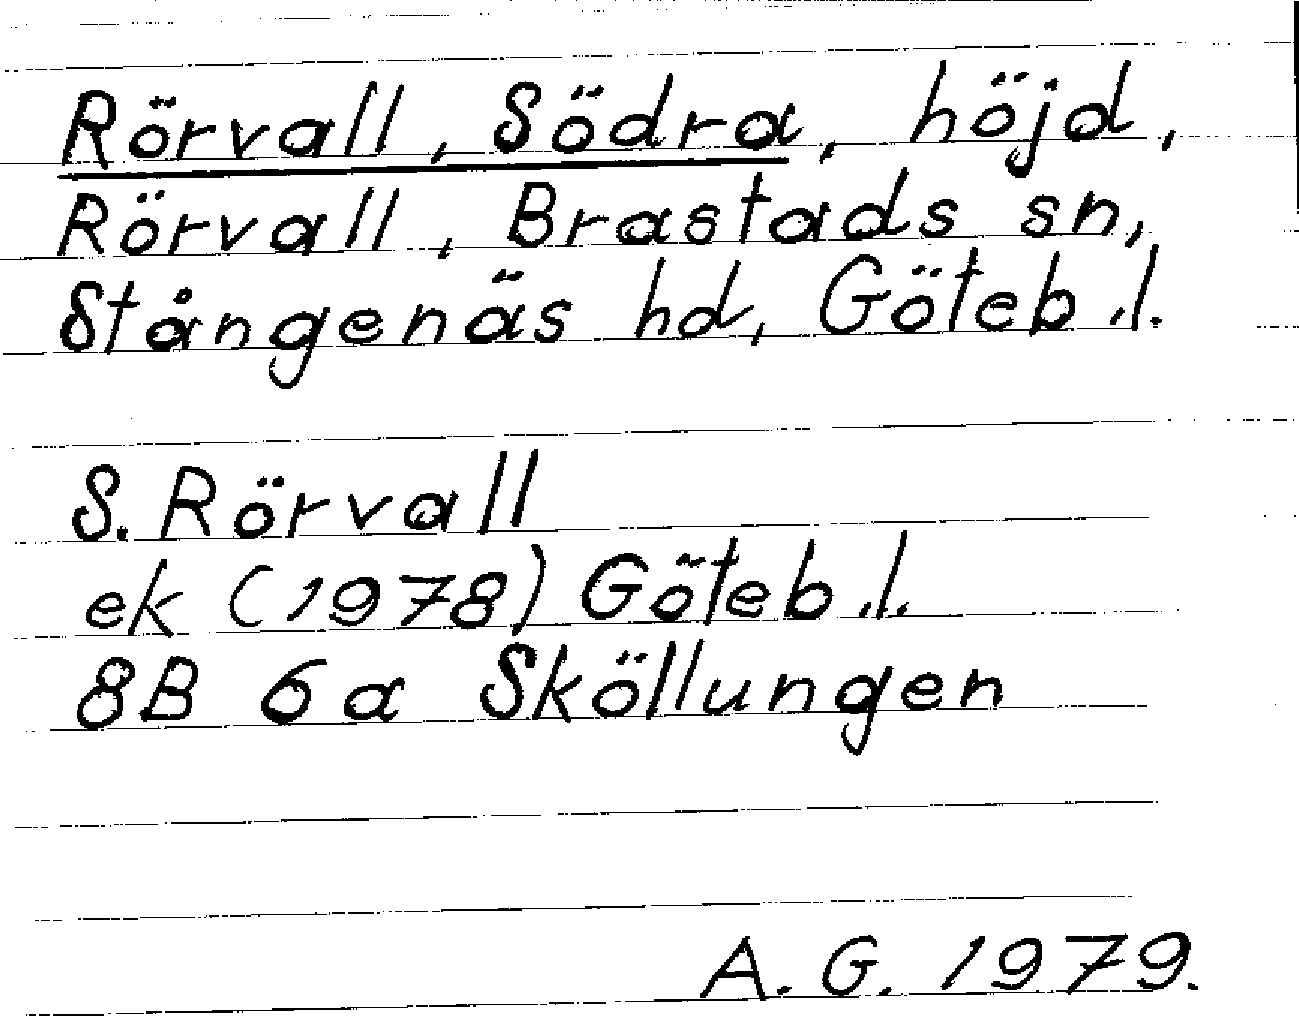 Rörvall, Södra, höjd,
Rörvall, Brastads sn,
Stångenäs hd, Göteb.l.
S. Rörvall
ek (1978) Göteb.l.
8B 6a Sköllungen
A. G. 1979.